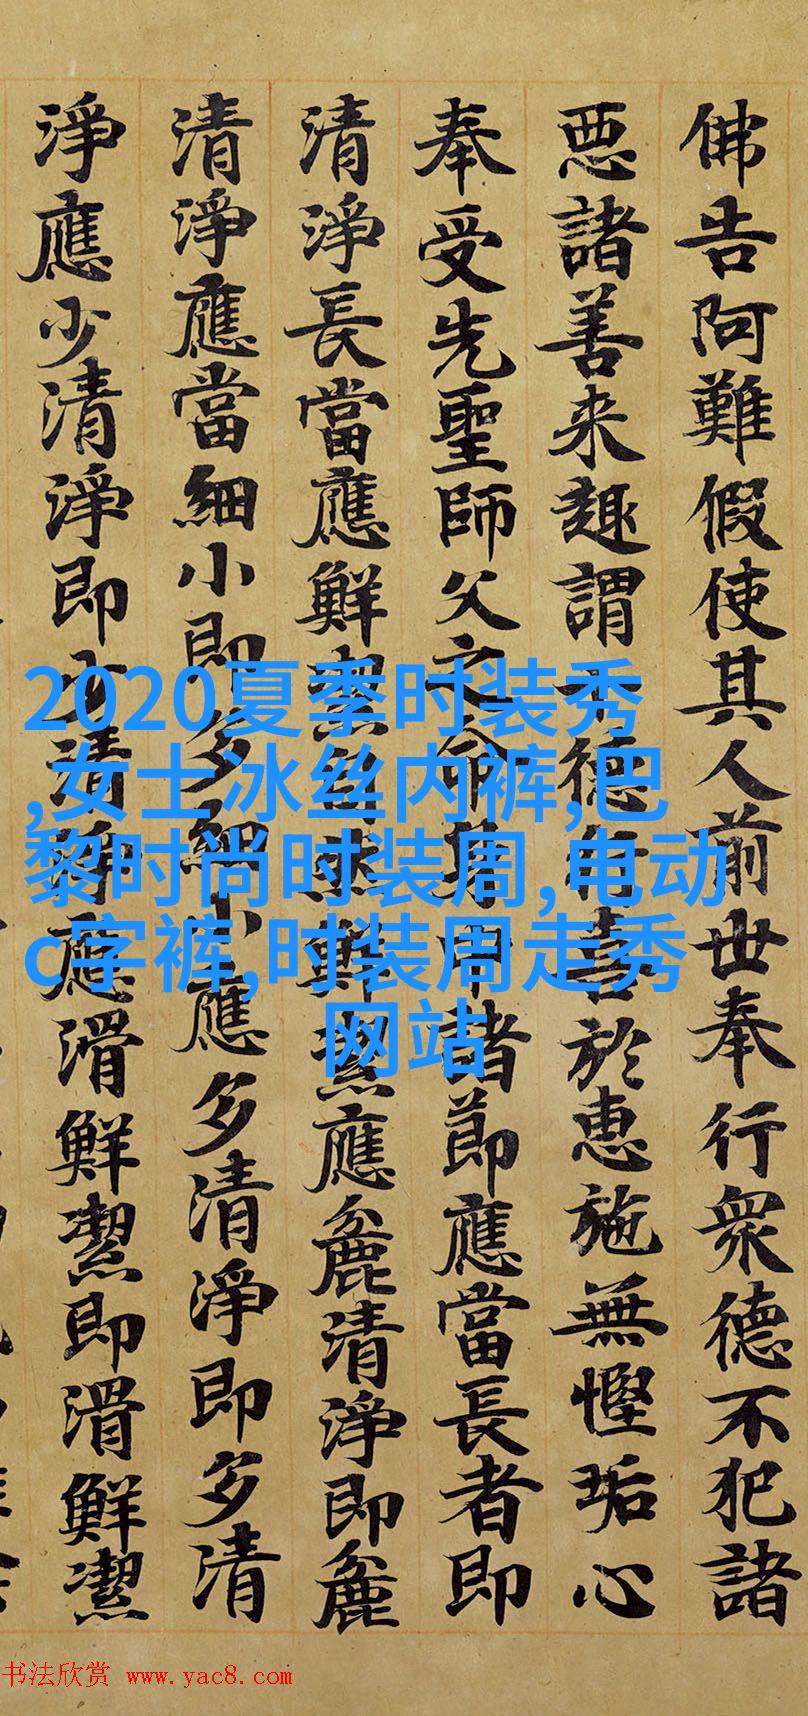 佛告阿難假使其人前世奉行衆德不犯諸
惡諸善来趣謂德喜於惠施無慳垢心
奉受先聖師父之命中諸節應當長者即
清淨長當應鮮潔自然鮮潔應麁清淨即麁
清淨應當細小即多細小應多清淨即多清
淨應少清淨即少清淨應滑鮮潔即滑鮮潔
2020夏季时装秀
,女士冰丝内裤,巴
黎时尚时装周,电动
c字裤,时装周走秀
网站
书法欣赏 www.yac8.com